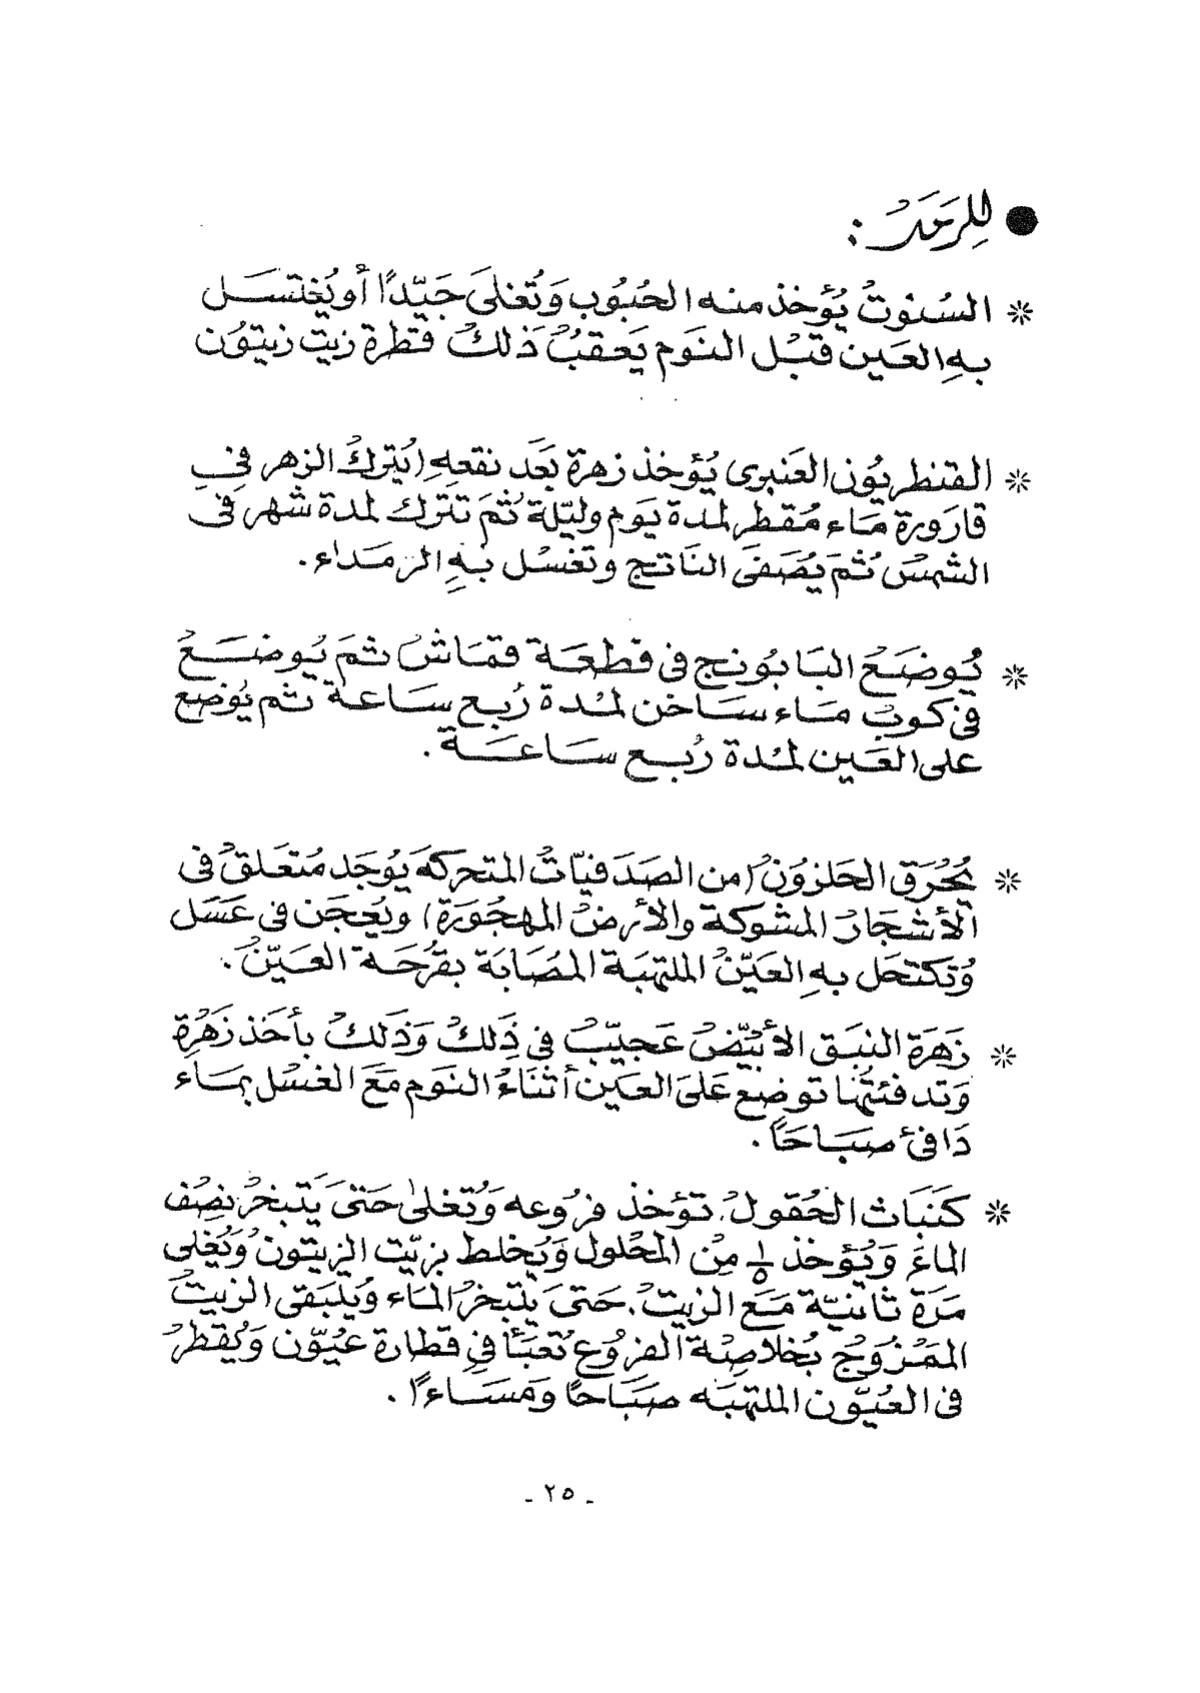 ● للرمد :
* السنوت يُؤخذ منه الحبُوب وَتُغلىَ جَيّدًا أو يُغتسَل
بهِ العَين قبْل النوَم يَعقبُ ذَلك قطرة زيت زيتوُن
* القنطريُون العَنبرى يُؤخذ زهرة بَعَد نقعهِ (يُتركُ الزهر فِى
قارَورة مَاء مُقطر لمدة يَوم وليّلة ثُمَ تترك لمدة شهر فى
الشمسُ ثُمَ يُصَفىَ النَاتج وتغسُل بهِ الرمَداء .
* يُوضَعُ البَابُونج فى قطعَة قمَاش ثمَ يُوضَعُ
فى كوبُ مَاء سَاخن لمُدة رُبع سَاعة ثم يُوضع
على العَين لمُدة رُبع سَاعَة .
* يُحُرَق الحَلزوَنُ (من الصَدَفيّاتُ المتحركةَ يَوُجَد مُتعَلقُ فى
الأشجَارُ المشوكة والأرضُ المهجُورَة) ويُعجَن فى عَسَل
وُتكتحَل بهِ العَيّنُ الملتهبَة المصَابَة بقرُحَة العَيّنُ .
* زَهَرَة النبَق الأبيّضُ عَجيّبُ فى ذَِلكُ وَذَلكُ بأخَذ زَهُرة
وَتدفئتُها توضع عَلىَ العَين أثنَاءُ النوَم مَعَ الغسُل بمَاء
دَافئ صبَاحَاً .
* كَنبَاث الحُقولُ. تؤخذ فروُعه وَتُغلىٰ حَتىَ يَتبخرُ نصُف
الماءَ وَيُؤخذ ١/٥ مِنُ المحُلول وَيُخلط بزيّت الزيتونُ وَيُغلى
مَرَة ثانيّة مَعَ الزيتُ. حَتىَ يتبخرُ المَاء وُيلبَقى الزيتُ
الممَزوُج بُخلاصِة الفروُع تُعبَأ فِى قطارة عيُوّن وَيُقطرُ
فى العيُوّن الملتهبَه صبَاحًا وَمسَاءًا .
- ٢٥ -